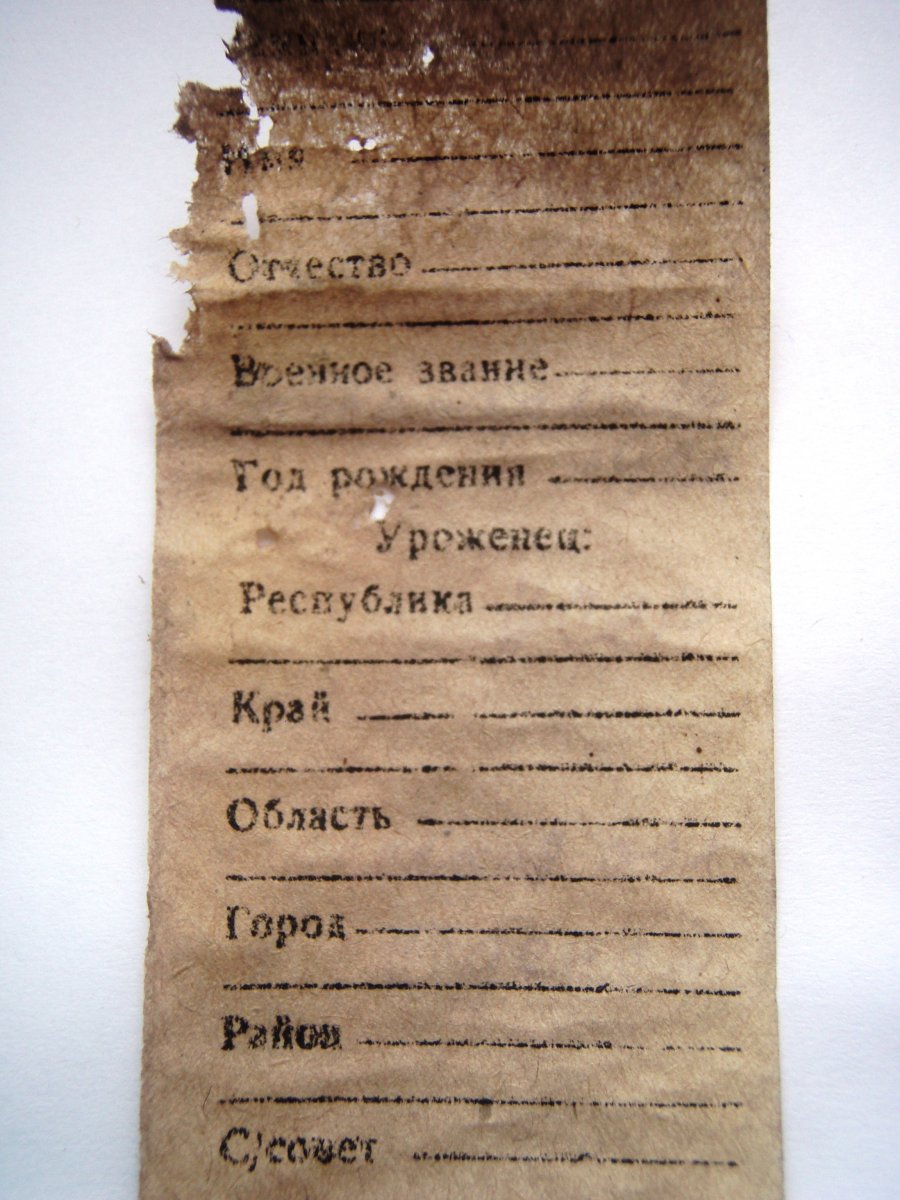 Имя
Отчество
Военное звание
Год рождения
Уроженец:
Республика
Край
Область
Город
Район
С/совет